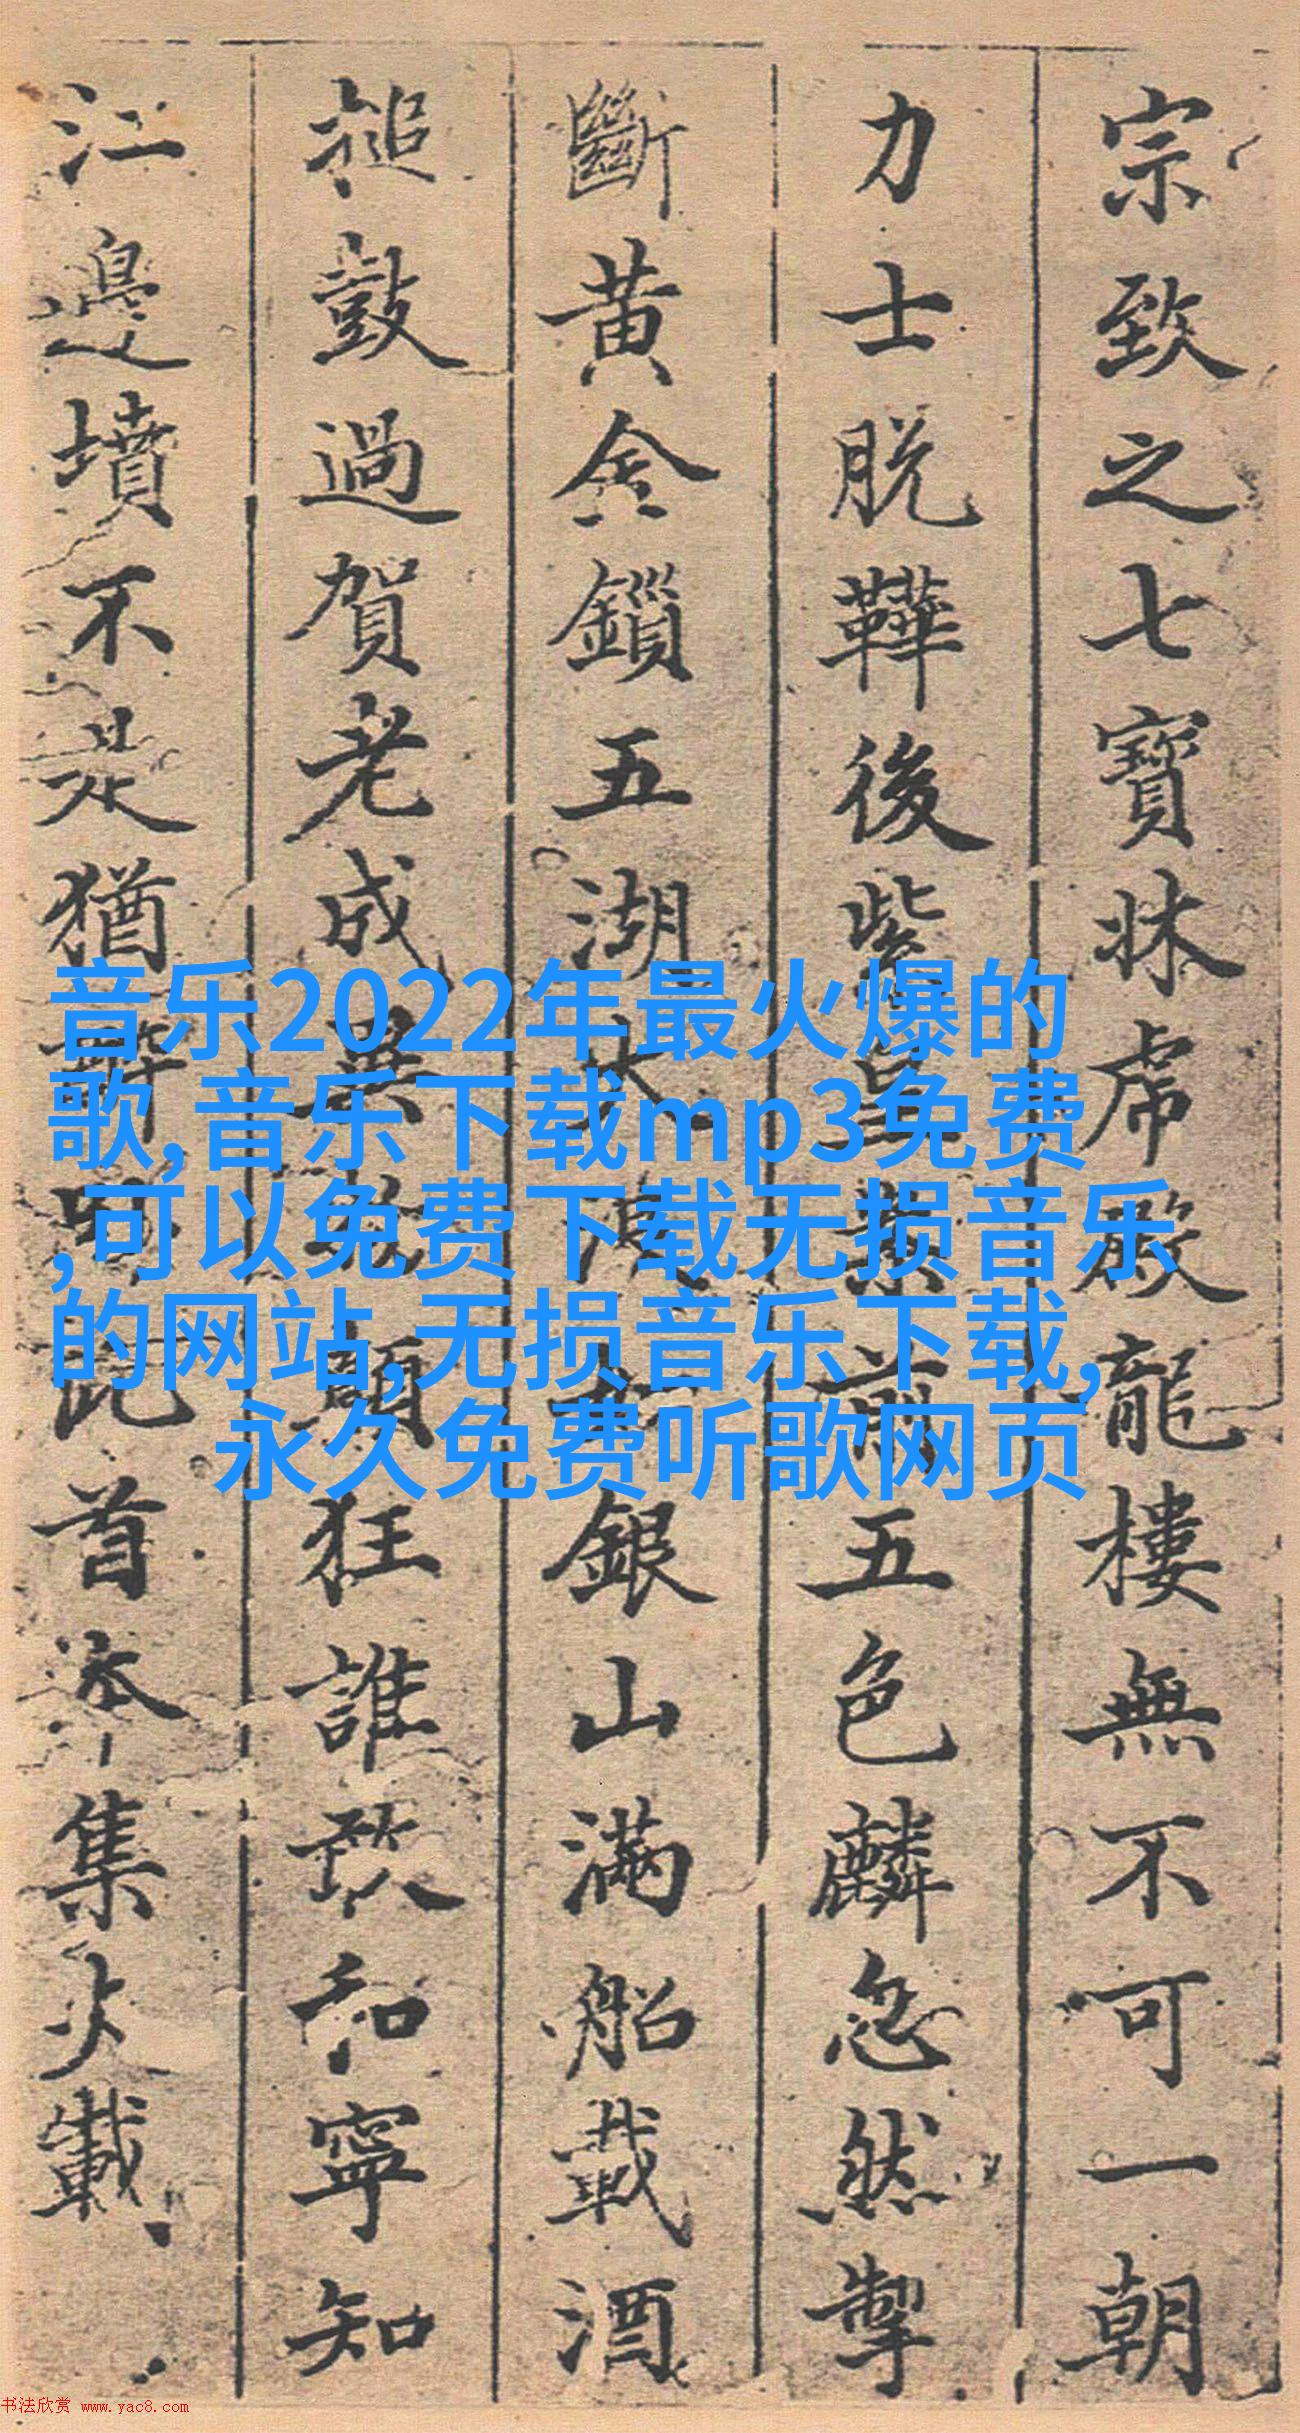 宗致之七寶牀虎殿龍樓無不可一朝
力士脱鞾後紫皇案前五色麟忽然掣
斷黄金鎖五湖大浪如銀山滿船載酒
搥鼓過賀老成異物顛狂誰敢和寧知
江邊墳不是猶醉眠此首本集不載
音乐2022年最火爆的
歌,音乐下载mp3免费
,可以免费下载无损音乐
的网站,无损音乐下载,
永久免费听歌网页
书法欣赏 www.yac8.com